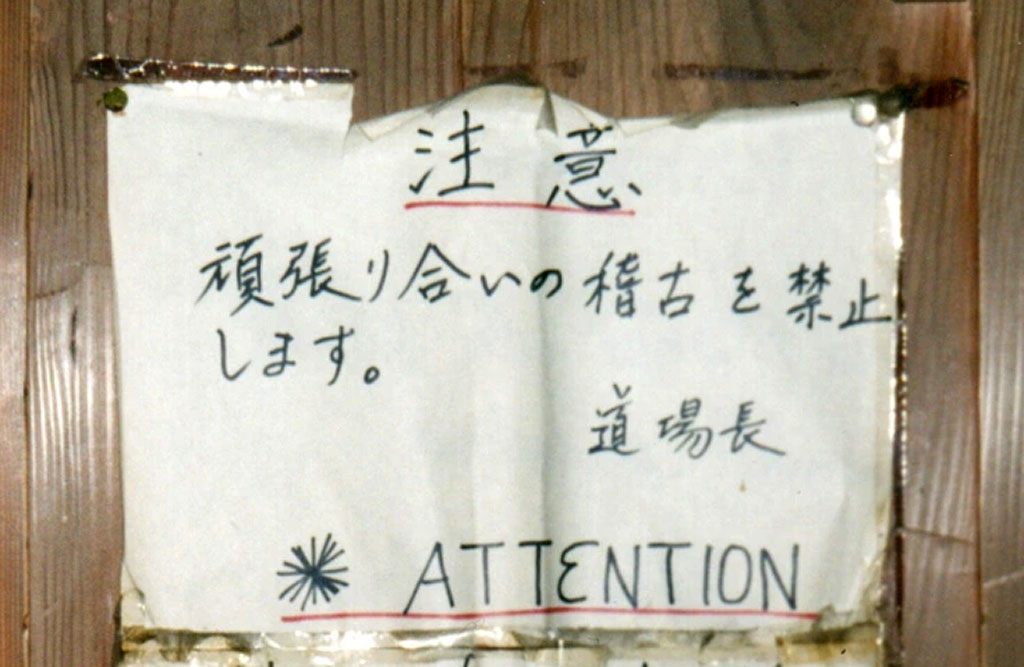 注意
頑張り合いの稽古を禁止
します。
道場長
✳ ATTENTION